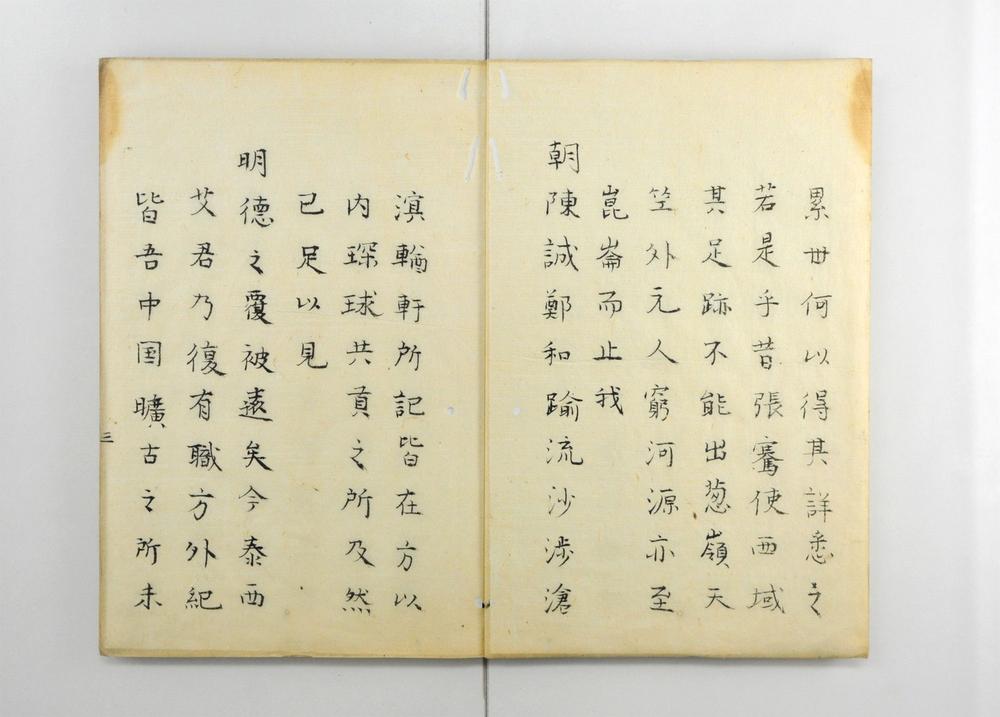 累世何以得其詳悉之
若是乎昔張騫使西域
其足跡不能出葱嶺天
竺外元人窮河源亦至
崑崙而止我
朝陳誠鄭和踰流沙涉滄
溟輶軒所記皆在方以
内琛球共貢之所及然
已足以見
明德之覆被遠矣今泰西
艾君乃復有職方外紀
皆吾中国曠古之所未
三